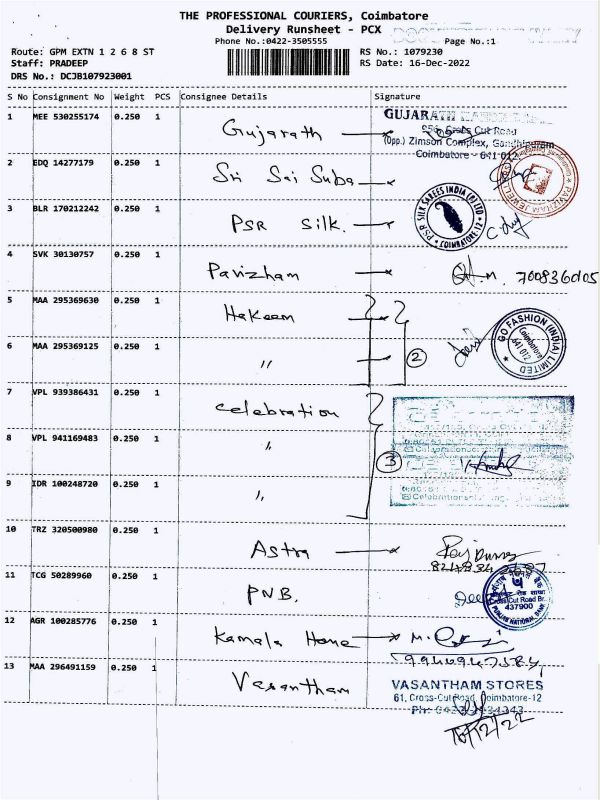 THE PROFESSIONAL COURIERS, Coimbatore
Delivery Runsheet - PCX
Phone No.:0422-3505555
Page No.:1
Route: GPM EXTN 1 2 6 8 ST
Staff: PRADEEP
DRS No.: DCJB107923001
RS No.: 1079230
RS Date: 16-Dec-2022
S No Consignment No Weight PCS Consignee Details Signature
1 MEE 530255174 0.250 1 Gujarath
GUJARATH
Cross Cut Road
(Opp.) Zimson Complex, Gandhipuram
Coimbatore - 641 012
2 EDQ 14277179 0.250 1 Sri Sai Suba
PAVIZHAM JEWELL
3 BLR 170212242 0.250 1 PSR Silk.
PSR SILK SAREES INDIA (P) LTD
COIMBATORE-12
4 SVK 30130757 0.250 1 Pavizham
5 MAA 295369630 0.250 1 Hakeem
6 MAA 295369125 0.250 1 "
2
GO FASHION (INDIA) LIMITED
Coimbatore
641 012
7 VPL 939386431 0.250 1 celebration
8 VPL 941169483 0.250 1 "
3
9 IDR 100248720 0.250 1 "
10 TRZ 320500980 0.250 1 Astra
11 TCG 50289960 0.250 1 PNB.
Cross Cut Road Br.
437900
PUNJAB NATIONAL BANK
12 AGR 100285776 0.250 1 Kamala Home
13 MAA 296491159 0.250 1 Vasantham
VASANTHAM STORES
61, Cross-Cut Road, Coimbatore-12
16/12/22